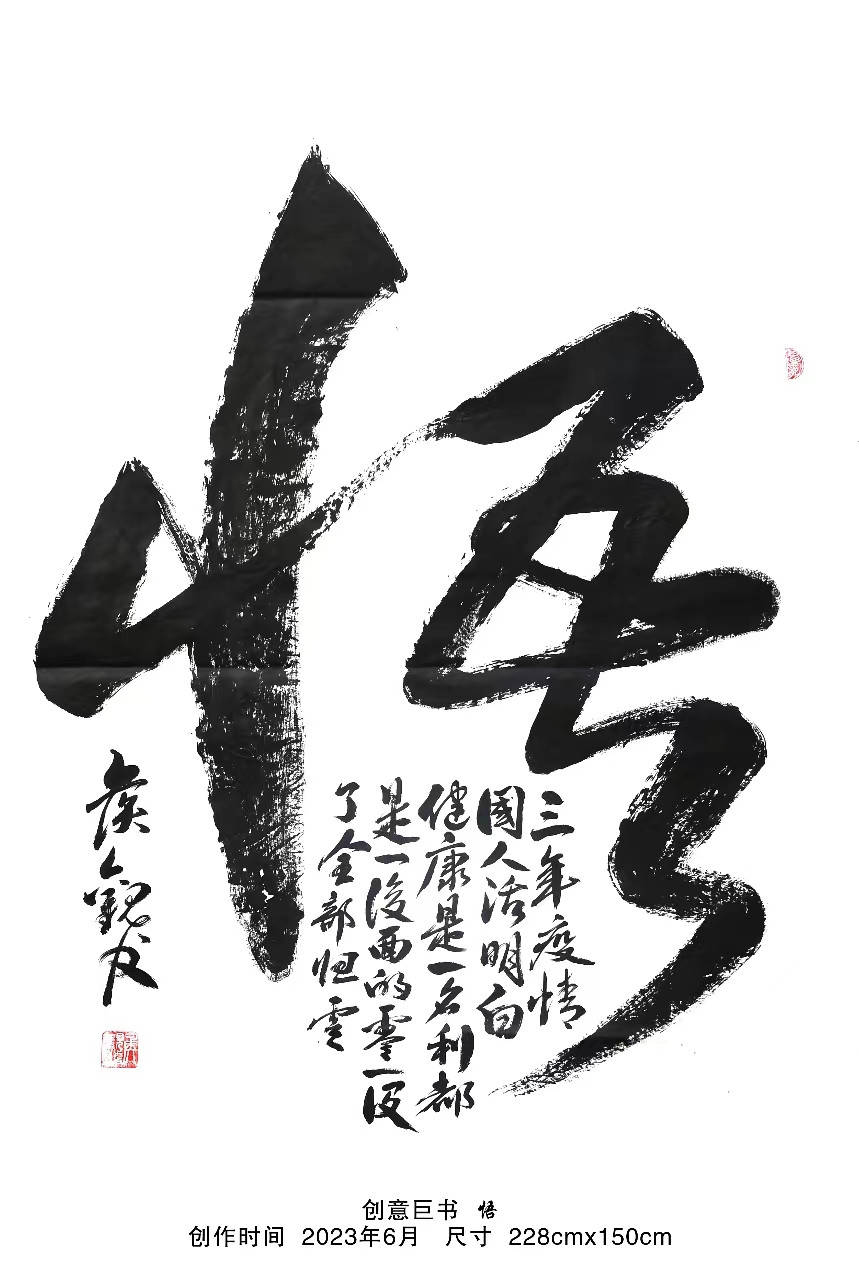 悟
三年疫情
國人活明白
健康是一名利都
是一後面的零一没
了全部归零
侯
创意巨书 悟
创作时间 2023年6月 尺寸 228cmx150cm